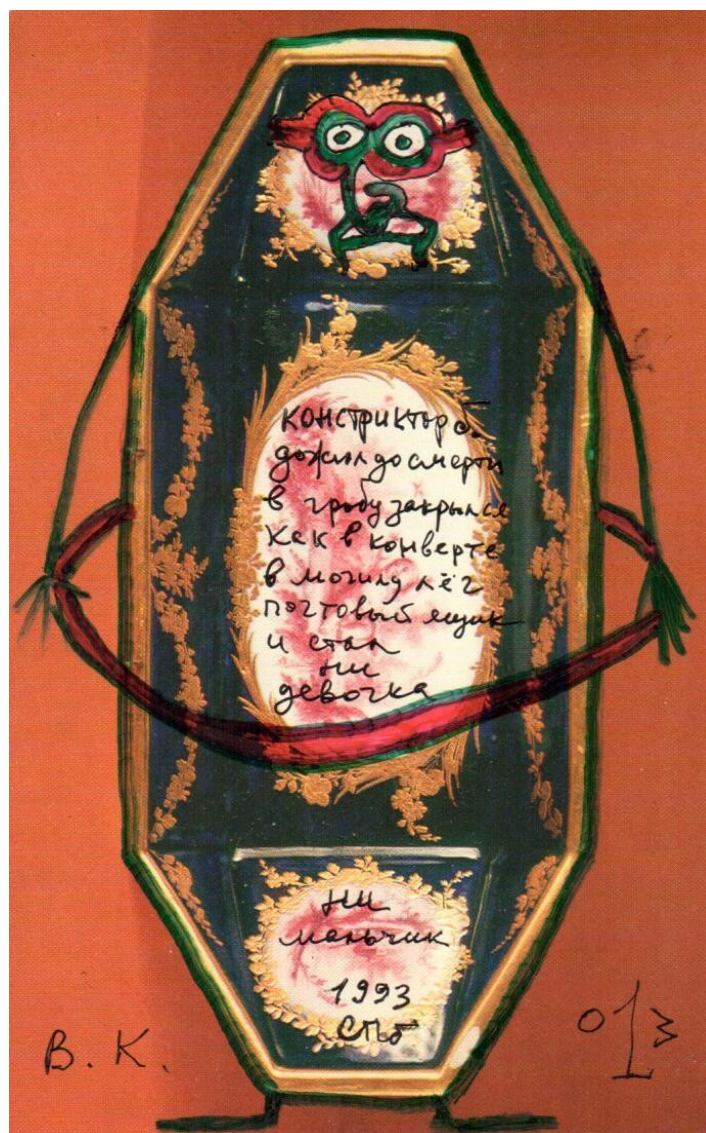 констриктор б.
дожил до смерти
в гробу закрылся
как в конверте
в могилу лёг
почтовый ящик
и стал
ни
девочка
ни
мальчик
1993
СПб
В. К.
013